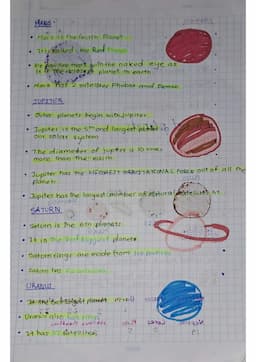 MARS
Mars is the fourth Planet
It is called the Red Planet
with the naked eye as
It is the closest planet to earth
Mars has 2 satellites Phobos and Demos
JUPITER
Outer planets begin with Jupiter
Jupiter is the 5th and largest planet in
our solar system
The diameter of Jupiter is 10 times
more than the earth
Jupiter has the HIGHEST GRAVITATIONAL Force out of all the
planets
Jupiter has the largest number of natural satellites
SATURN
Saturn is the 6th planet
It is the 2nd biggest planet
Saturn rings are made from
Saturn has
URANUS
It the 3rd biggest planet
Uranus also has rings
It has satellites